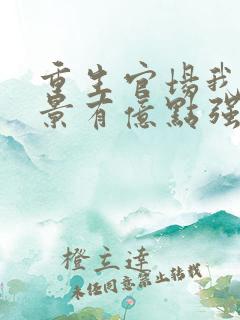 重生官場我
景有億點強
橙立達
未經同意禁止轉載